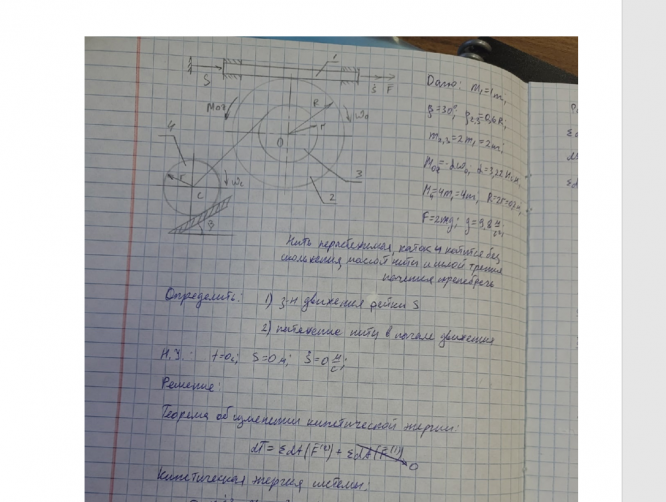 1
S
S F
Дано: m₁=1m,
β=30°; ρ₂,₃=0,6R;
m₂,₃=2m₁=2m;
M₄=4m₁=4m,
F=2mg; g=9,8 м/с²
Mот
R
r
ω₀
O
4
3
2
r
C
ωc
β
Нить нерастяжимая, каток 4 катится без
скольжения, массой нити и силой трения
качения пренебречь
Определить: 1) з-н движения рейки S
2) натяжение нити в начале движения
Н.У.: t=0с; S=0 м; Ṡ=0 м/с;
Решение:
Теорема об изменении кинетической энергии:
dT = ΣdA(F̅⁽ᵉ⁾) + ΣdA(F̅⁽ⁱ⁾) 0
Кинетическая энергия системы: